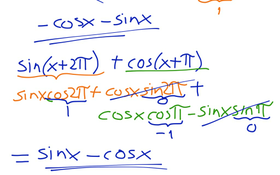 1
-cosx - sinx
sin(x+2π) + cos(x+π)
sinxcos2π + cosxsin2π +
1 0
cosxcosπ - sinxsinπ
-1 0
= sinx - cosx